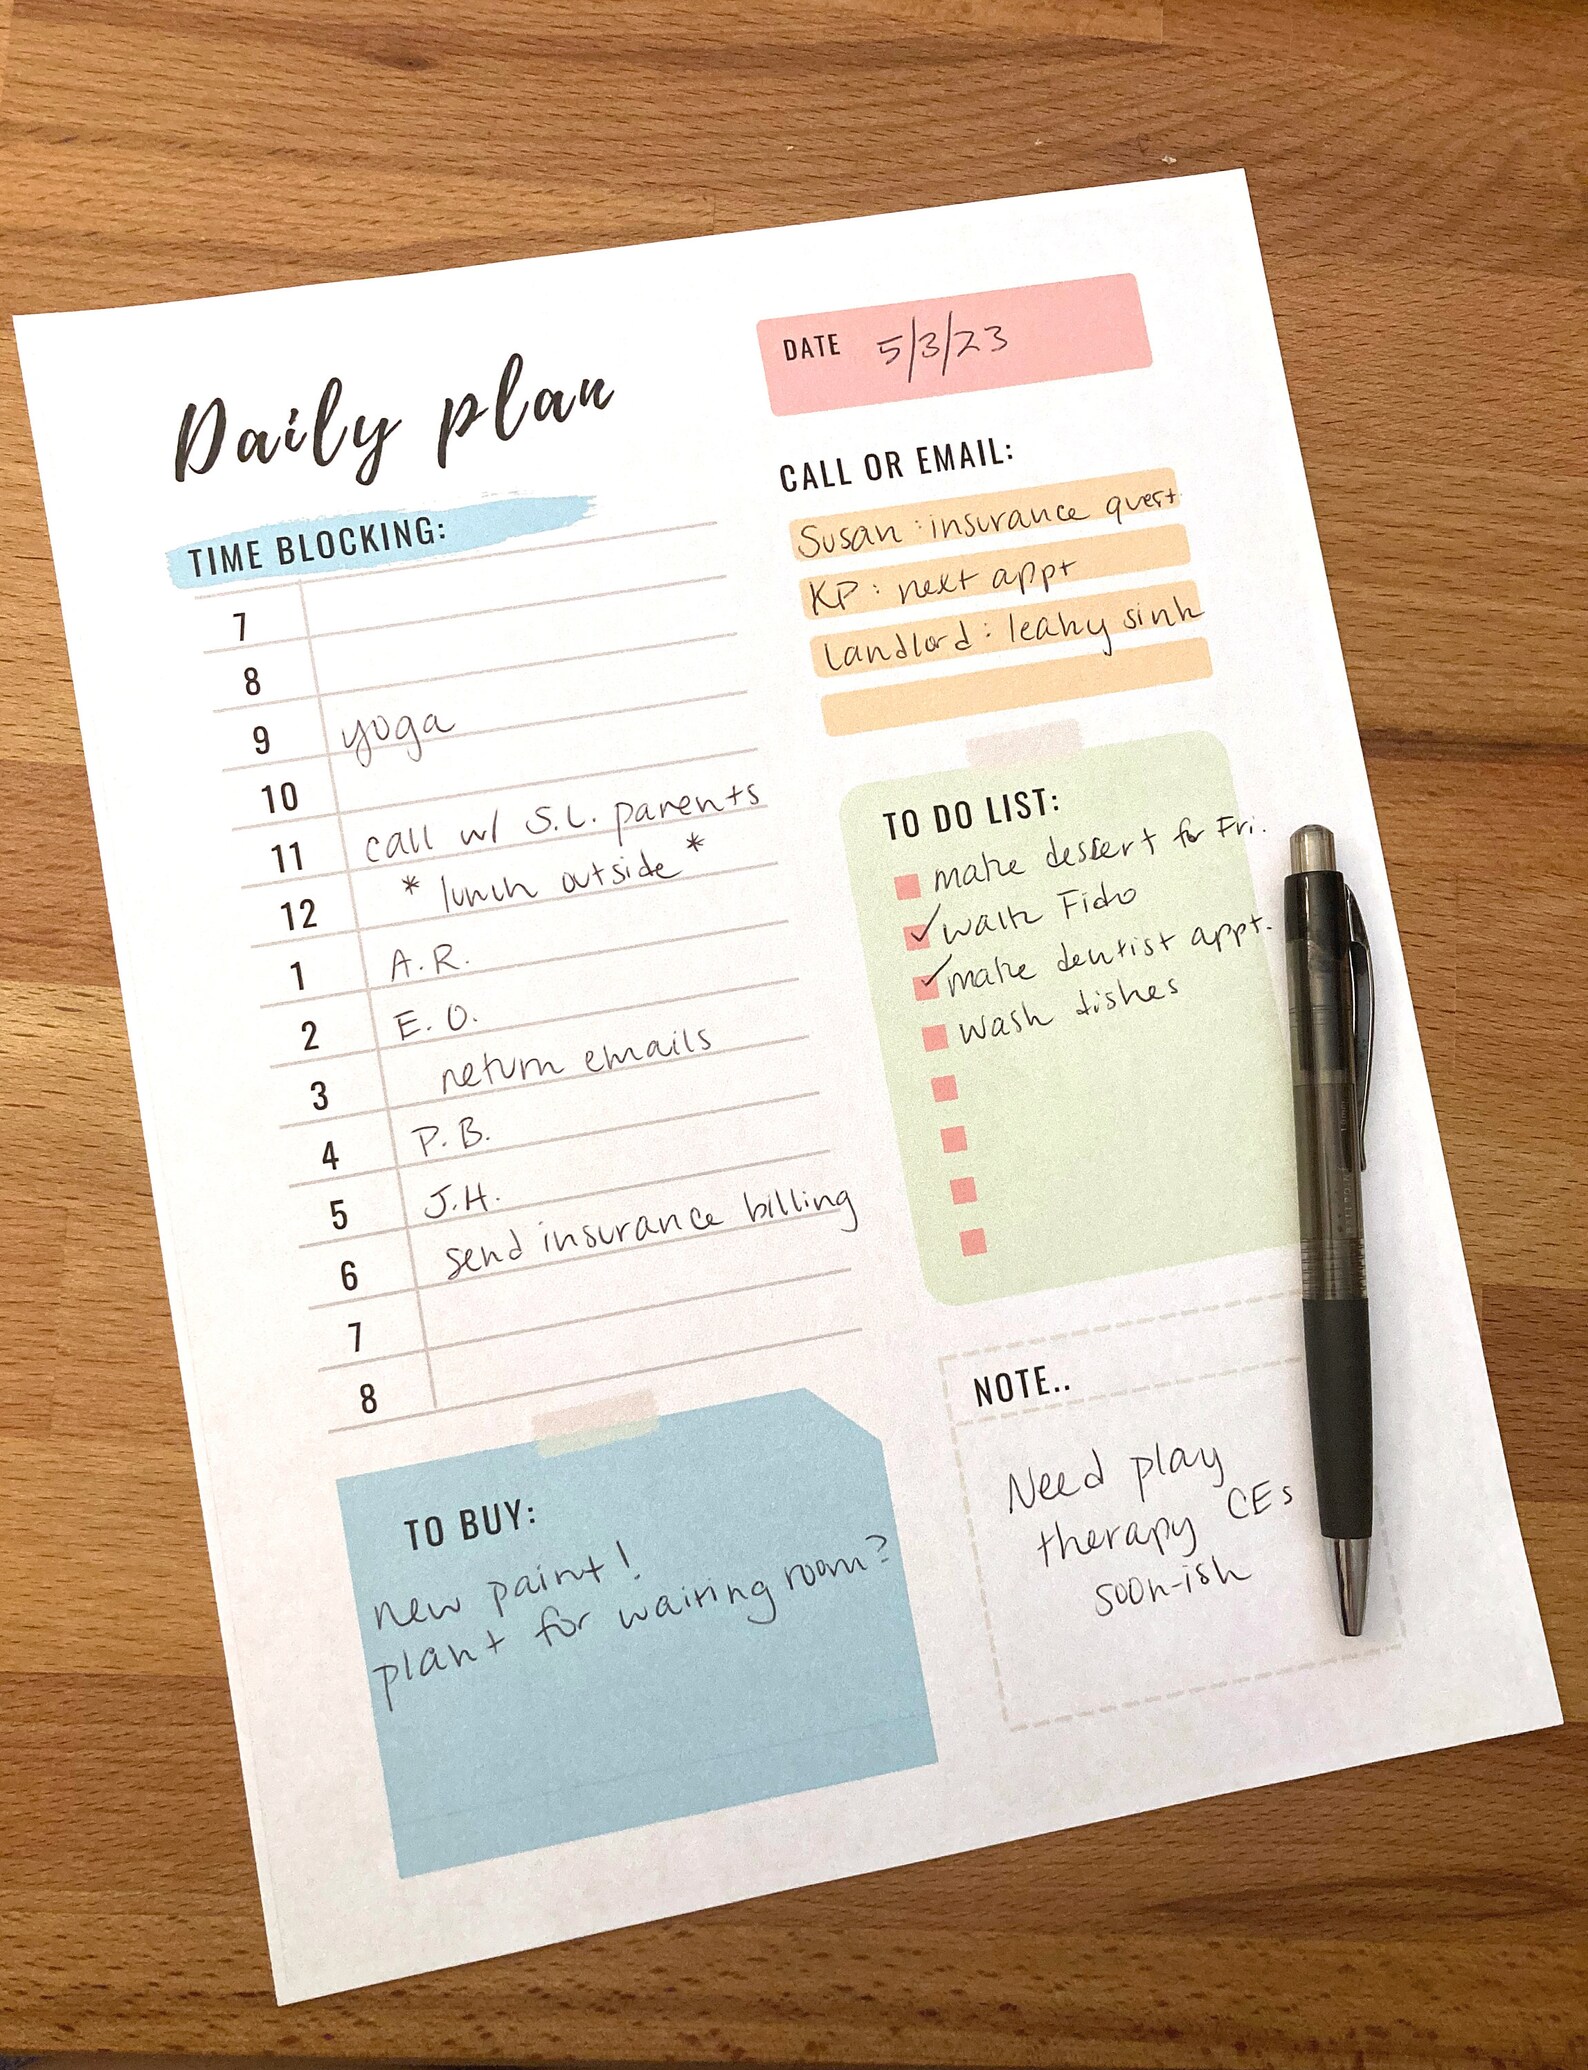 Daily plan
DATE 5/3/23
TIME BLOCKING:
7
8
9 yoga
10
11 call w/ S.L. parents
12 * lunch outside *
1 A.R.
2 E.O.
3 return emails
4 P.B.
5 J.H.
6 send insurance billing
7
8
CALL OR EMAIL:
Susan: insurance quest
KP: next appt
Landlord: leaky sink
TO DO LIST:
make dessert for Fri.
✓ walk Fido
✓ make dentist appt.
wash dishes
TO BUY:
new paint!
plant for waiting room?
NOTE..
Need play
therapy CEs
soon-ish